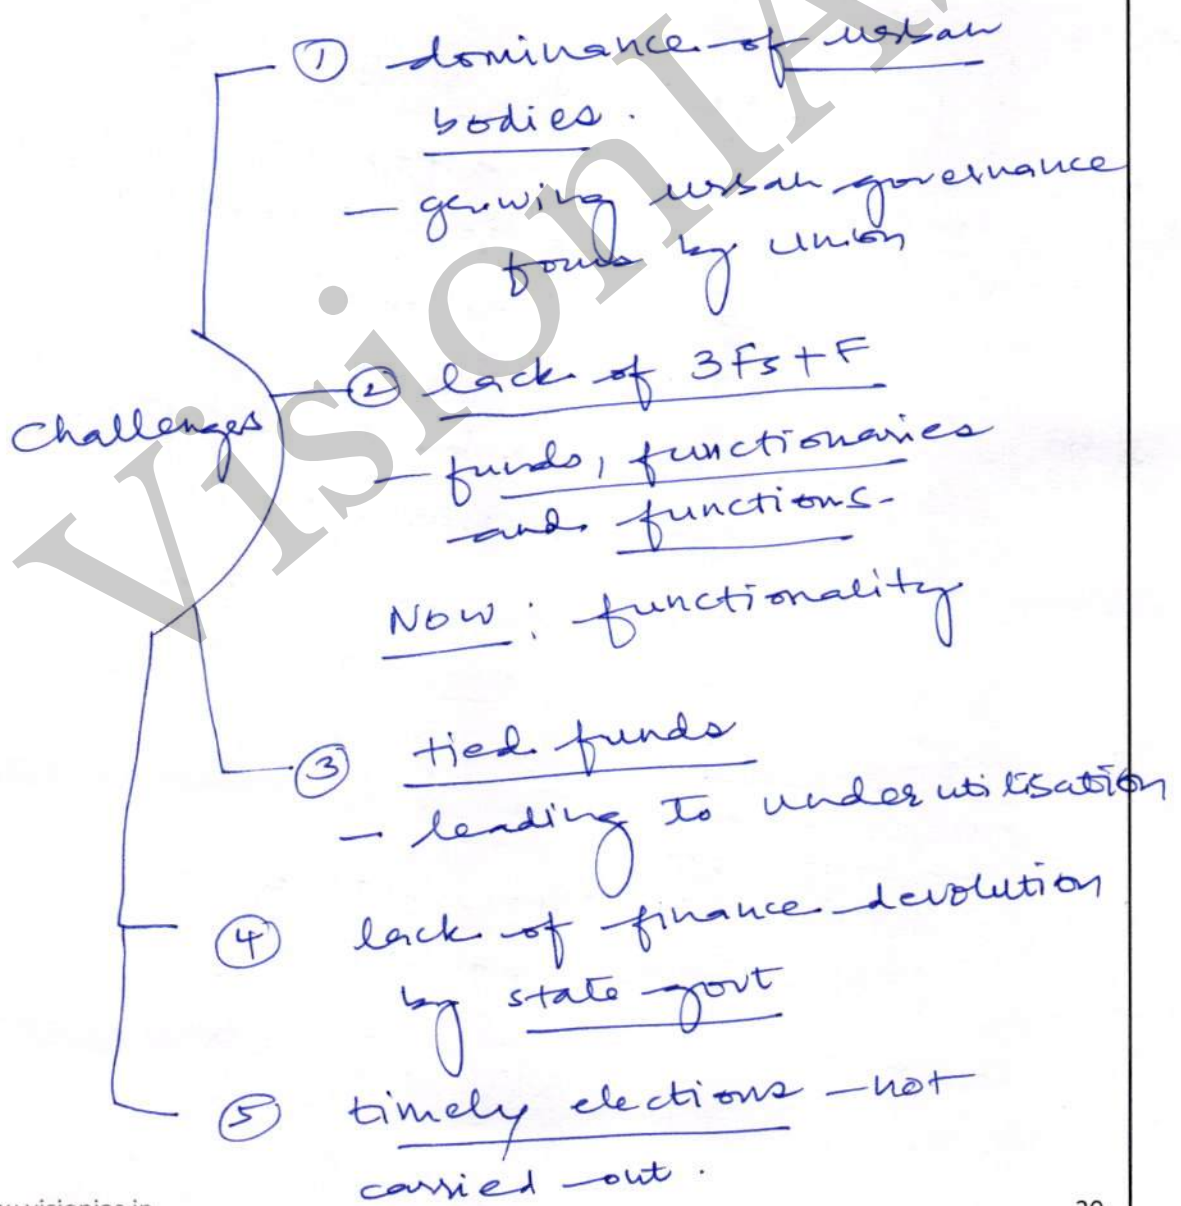 ① dominance of urban
bodies.
— growing urban governance
focus by union
Challenges
② lack of 3Fs + F
— funds, functionaries
and functions.
Now : functionality
③ tied funds
— leading to under utilisation
④ lack of finance devolution
by state govt
⑤ timely elections not
carried out.
VisionIA